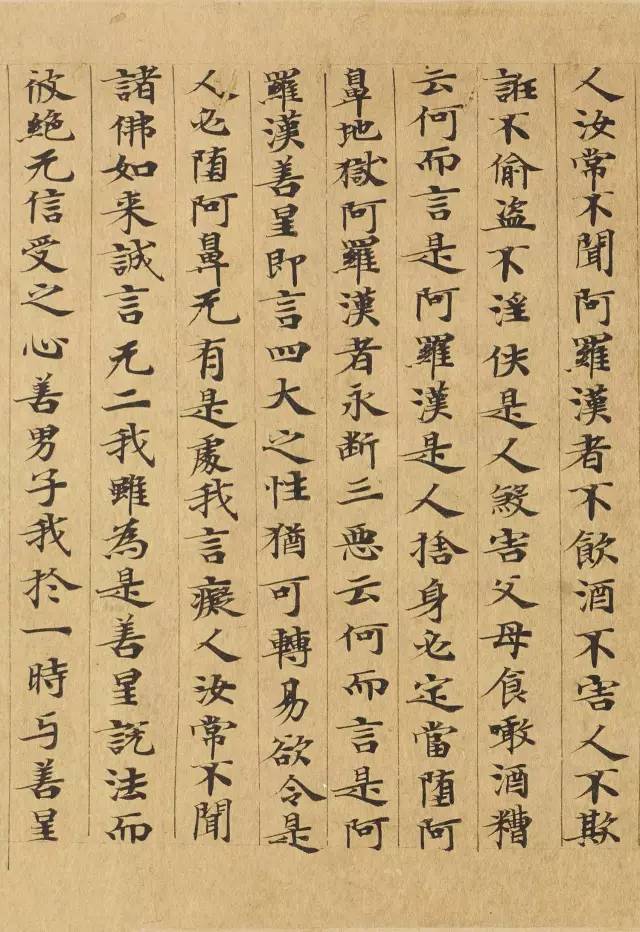 人汝常不聞阿羅漢者不飲酒不害人不欺
誑不偷盜不淫佚是人煞害父母食噉酒糟
云何而言是阿羅漢是人捨身必定當墮阿
鼻地獄阿羅漢者永断三惡云何而言是阿
羅漢善星即言四大之性猶可轉易欲令是
人必墮阿鼻无有是處我言癡人汝常不聞
諸佛如来誠言无二我雖為是善星說法而
彼絕无信受之心善男子我於一時与善星